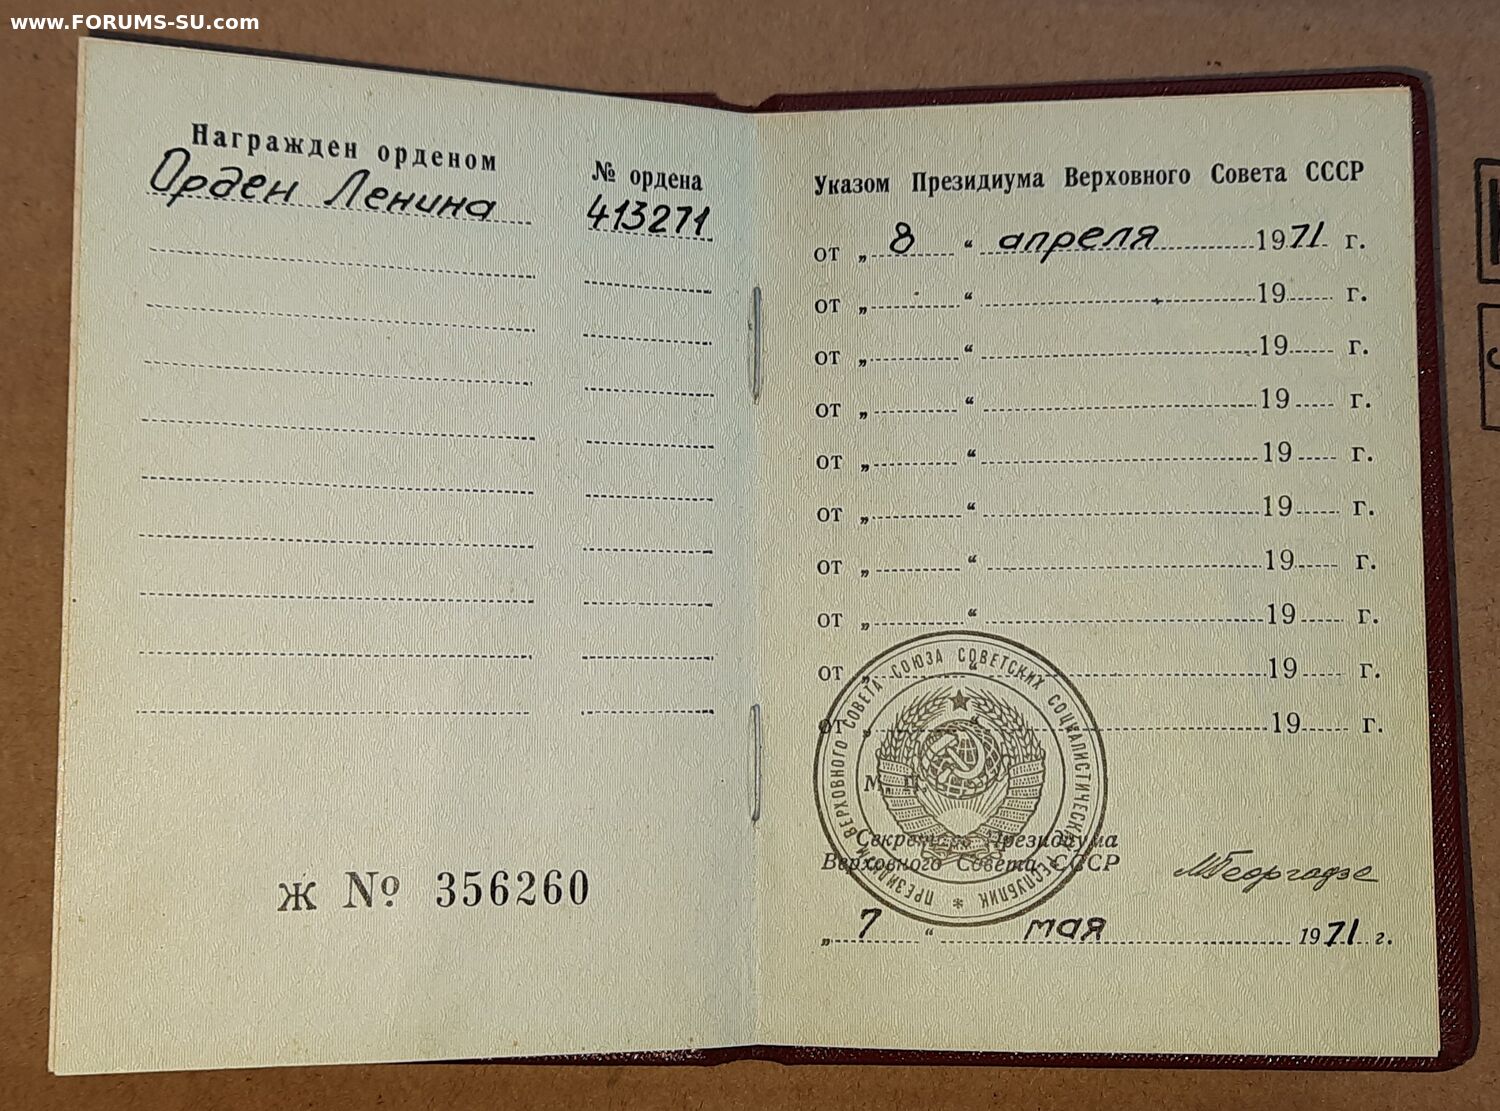 www.FORUMS-SU.com
Награжден орденом
№ ордена
Орден Ленина
413271
ж № 356260
Указом Президиума Верховного Совета СССР
от „ 8 “ апреля 1971 г.
от „ “ 19 г.
от „ “ 19 г.
от „ “ 19 г.
от „ “ 19 г.
от „ “ 19 г.
от „ “ 19 г.
от „ “ 19 г.
от „ “ 19 г.
от „ “ 19 г.
М. П.
ПРЕЗИДИУМ ВЕРХОВНОГО СОВЕТА СОЮЗА СОВЕТСКИХ СОЦИАЛИСТИЧЕСКИХ РЕСПУБЛИК *
Секретарь Президиума
Верховного Совета СССР
МГеоргадзе
„ 7 “ мая 1971 г.